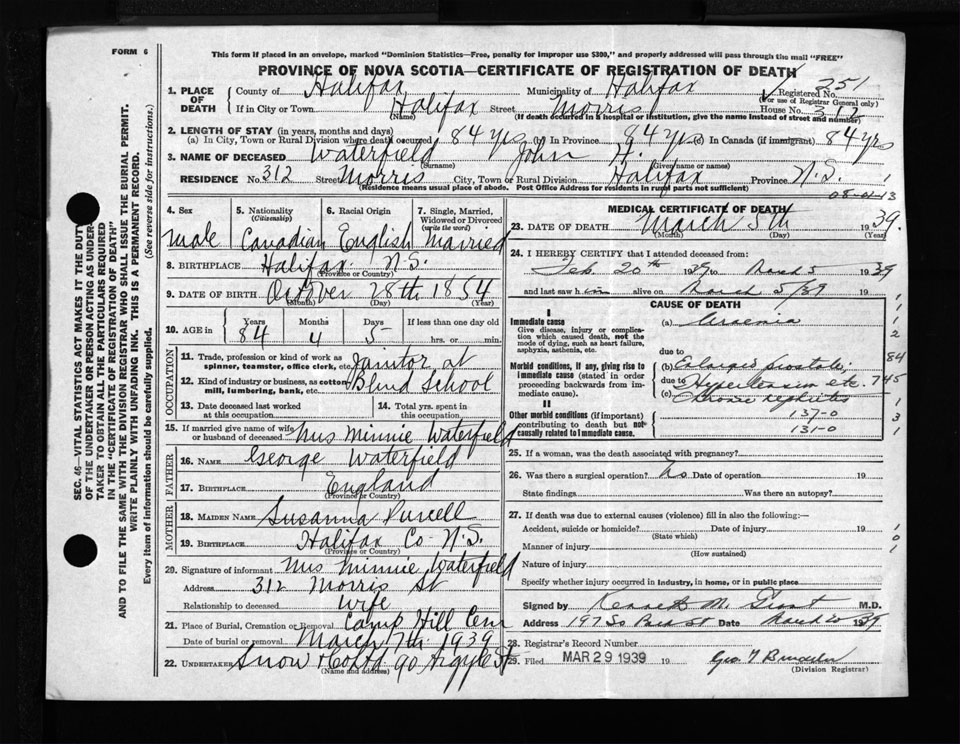 FORM 6
This form if placed in an envelope, marked "Dominion Statistics—Free, penalty for improper use $300," and properly addressed will pass through the mail "FREE"
PROVINCE OF NOVA SCOTIA—CERTIFICATE OF REGISTRATION OF DEATH
1. PLACE OF DEATH County of Halifax Municipality of Halifax Registered No. 251
(For use of Registrar General only)
If in City or Town Halifax Street Morris House No. 312
(Name) (If death occurred in a hospital or institution, give the name instead of street and number)
2. LENGTH OF STAY (in years, months and days)
(a) In City, Town or Rural Division where death occurred 84 yrs (b) In Province 84 yrs (c) In Canada (if immigrant) 84 yrs
3. NAME OF DECEASED Waterfield John H.
(Surname) (Given name or names)
RESIDENCE No. 312 Street Morris City, Town or Rural Division Halifax Province N.S.
(Residence means usual place of abode. Post Office Address for residents in rural parts not sufficient)
4. Sex Male
5. Nationality (Citizenship) Canadian
6. Racial Origin English
7. Single, Married, Widowed or Divorced (write the word) Married
8. BIRTHPLACE Halifax N.S.
(Province or Country)
9. DATE OF BIRTH October 28th 1854
(Month) (Day) (Year)
10. AGE in Years 84 Months 4 Days 5 If less than one day
hrs. or min.
OCCUPATION
11. Trade, profession or kind of work as spinner, teamster, office clerk, etc. Janitor at
12. Kind of industry or business, as cotton mill, lumbering, bank, etc. Blind School
13. Date deceased last worked at this occupation
14. Total yrs. spent in this occupation.
15. If married give name of wife or husband of deceased Mrs Minnie Waterfield
FATHER
16. NAME George Waterfield
17. BIRTHPLACE England
(Province or Country)
MOTHER
18. MAIDEN NAME Susanna Purcell
19. BIRTHPLACE Halifax Co N.S.
(Province or Country)
20. Signature of informant Mrs Minnie Waterfield
Address 312 Morris St
Relationship to deceased Wife
21. Place of Burial, Cremation or Removal Camp Hill Cem
Date of burial or removal March 7th 1939
22. UNDERTAKER Snow & Co Ltd 90 Argyle St
(Name and address)
MEDICAL CERTIFICATE OF DEATH
23. DATE OF DEATH March 5th 1939.
(Month) (Day) (Year)
24. I HEREBY CERTIFY that I attended deceased from:
Feb. 20th 1939 to March 5 1939
and last saw him alive on March 5/39 19
CAUSE OF DEATH
I
Immediate cause (a) Uraemia
Give disease, injury or complication which caused death, not the mode of dying, such as heart failure, asphyxia, asthenia, etc.
due to
Morbid conditions, if any, giving rise to immediate cause (stated in order proceeding backwards from immediate cause).
(b) Enlarged prostate,
due to Hypertension etc.
(c) Chronic nephritis
II
Other morbid conditions (if important) contributing to death but not causally related to immediate cause.
137-0
131-0
25. If a woman, was the death associated with pregnancy?
26. Was there a surgical operation? No Date of operation 19
State findings Was there an autopsy?
27. If death was due to external causes (violence) fill in also the following:—
Accident, suicide or homicide? Date of injury 19
(State which)
Manner of injury
(How sustained)
Nature of injury
Specify whether injury occurred in industry, in home, or in public place
Signed by Kenneth M. Grant M.D.
Address 197 So Park St Date March 20 1939
28. Registrar's Record Number
29. Filed MAR 29 1939 19
(Division Registrar)
SEC. 46—VITAL STATISTICS ACT MAKES IT THE DUTY
OF THE UNDERTAKER OR PERSON ACTING AS UNDER-
TAKER TO OBTAIN ALL THE PARTICULARS REQUIRED
IN THE "CERTIFICATE OF REGISTRATION OF DEATH"
AND TO FILE THE SAME WITH THE DIVISION REGISTRAR WHO SHALL ISSUE THE BURIAL PERMIT.
WRITE PLAINLY WITH UNFADING INK. THIS IS A PERMANENT RECORD.
Every item of information should be carefully supplied. (See reverse side for instructions.)